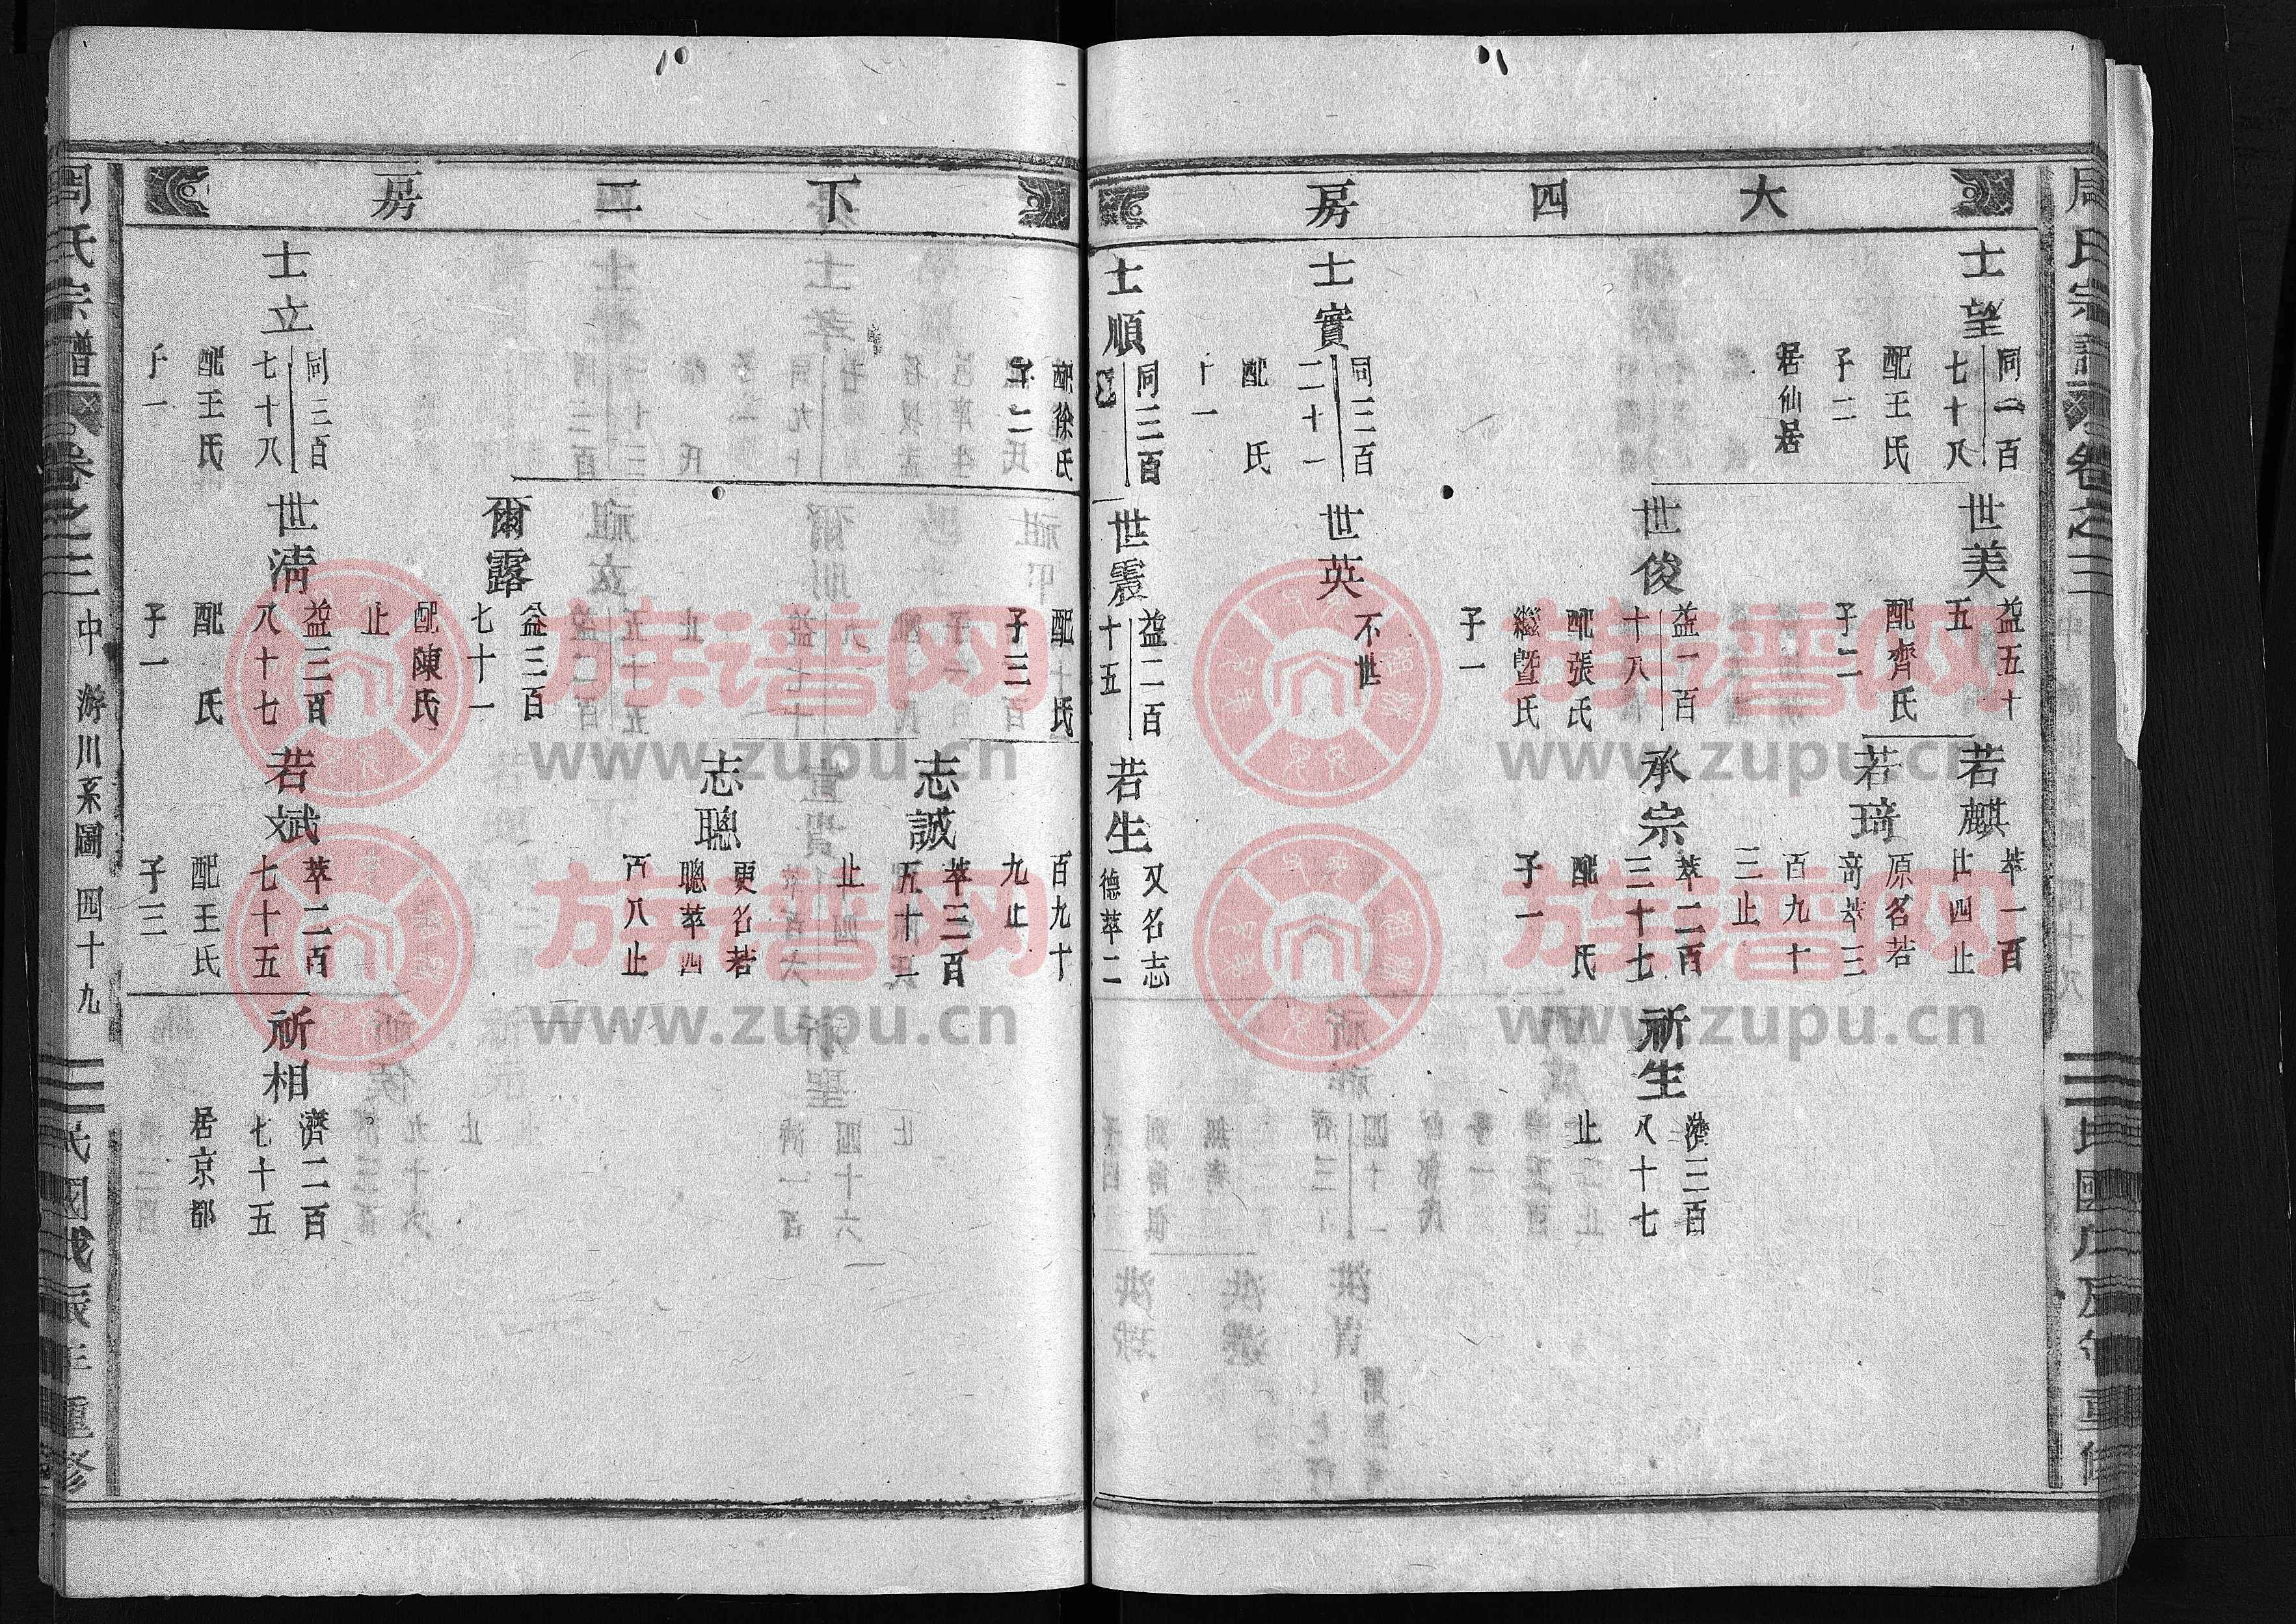 大四房
士望
同一百
七十八
配王氏
子二
居仙居
世美
益五十
五
配齊氏
子二
若麒
萃一百
廿四止
若琦
原名若
奇萃三
百九十
三止
世俊
益一百
十八
配張氏
繼暨氏
子一
承宗
萃二百
三十七
配 氏
子一
祈生
濟三百
八十七
止
士實
同三百
二十一
配 氏
子一
世英
不世
士順
同三百
世震
益二百
十五
若生
又名志
德萃二
下二房
配徐氏
子二
配 氏
子三
百九十
九止
志誠
萃三百
五十五
止
志聰
更名若
聰萃四
百八止
爾露
益三百
七十一
配陳氏
止
士立
同三百
七十八
配王氏
子一
世淸
益三百
八十七
配 氏
子一
若斌
萃二百
七十五
配王氏
子三
祈相
濟二百
七十五
居京都
周氏宗譜
卷之三
中游川系圖
四十九
民國戊辰年重修
族谱网
www.zupu.cn
族谱网
www.zupu.cn
族谱网
www.zupu.cn
族谱网
www.zupu.cn